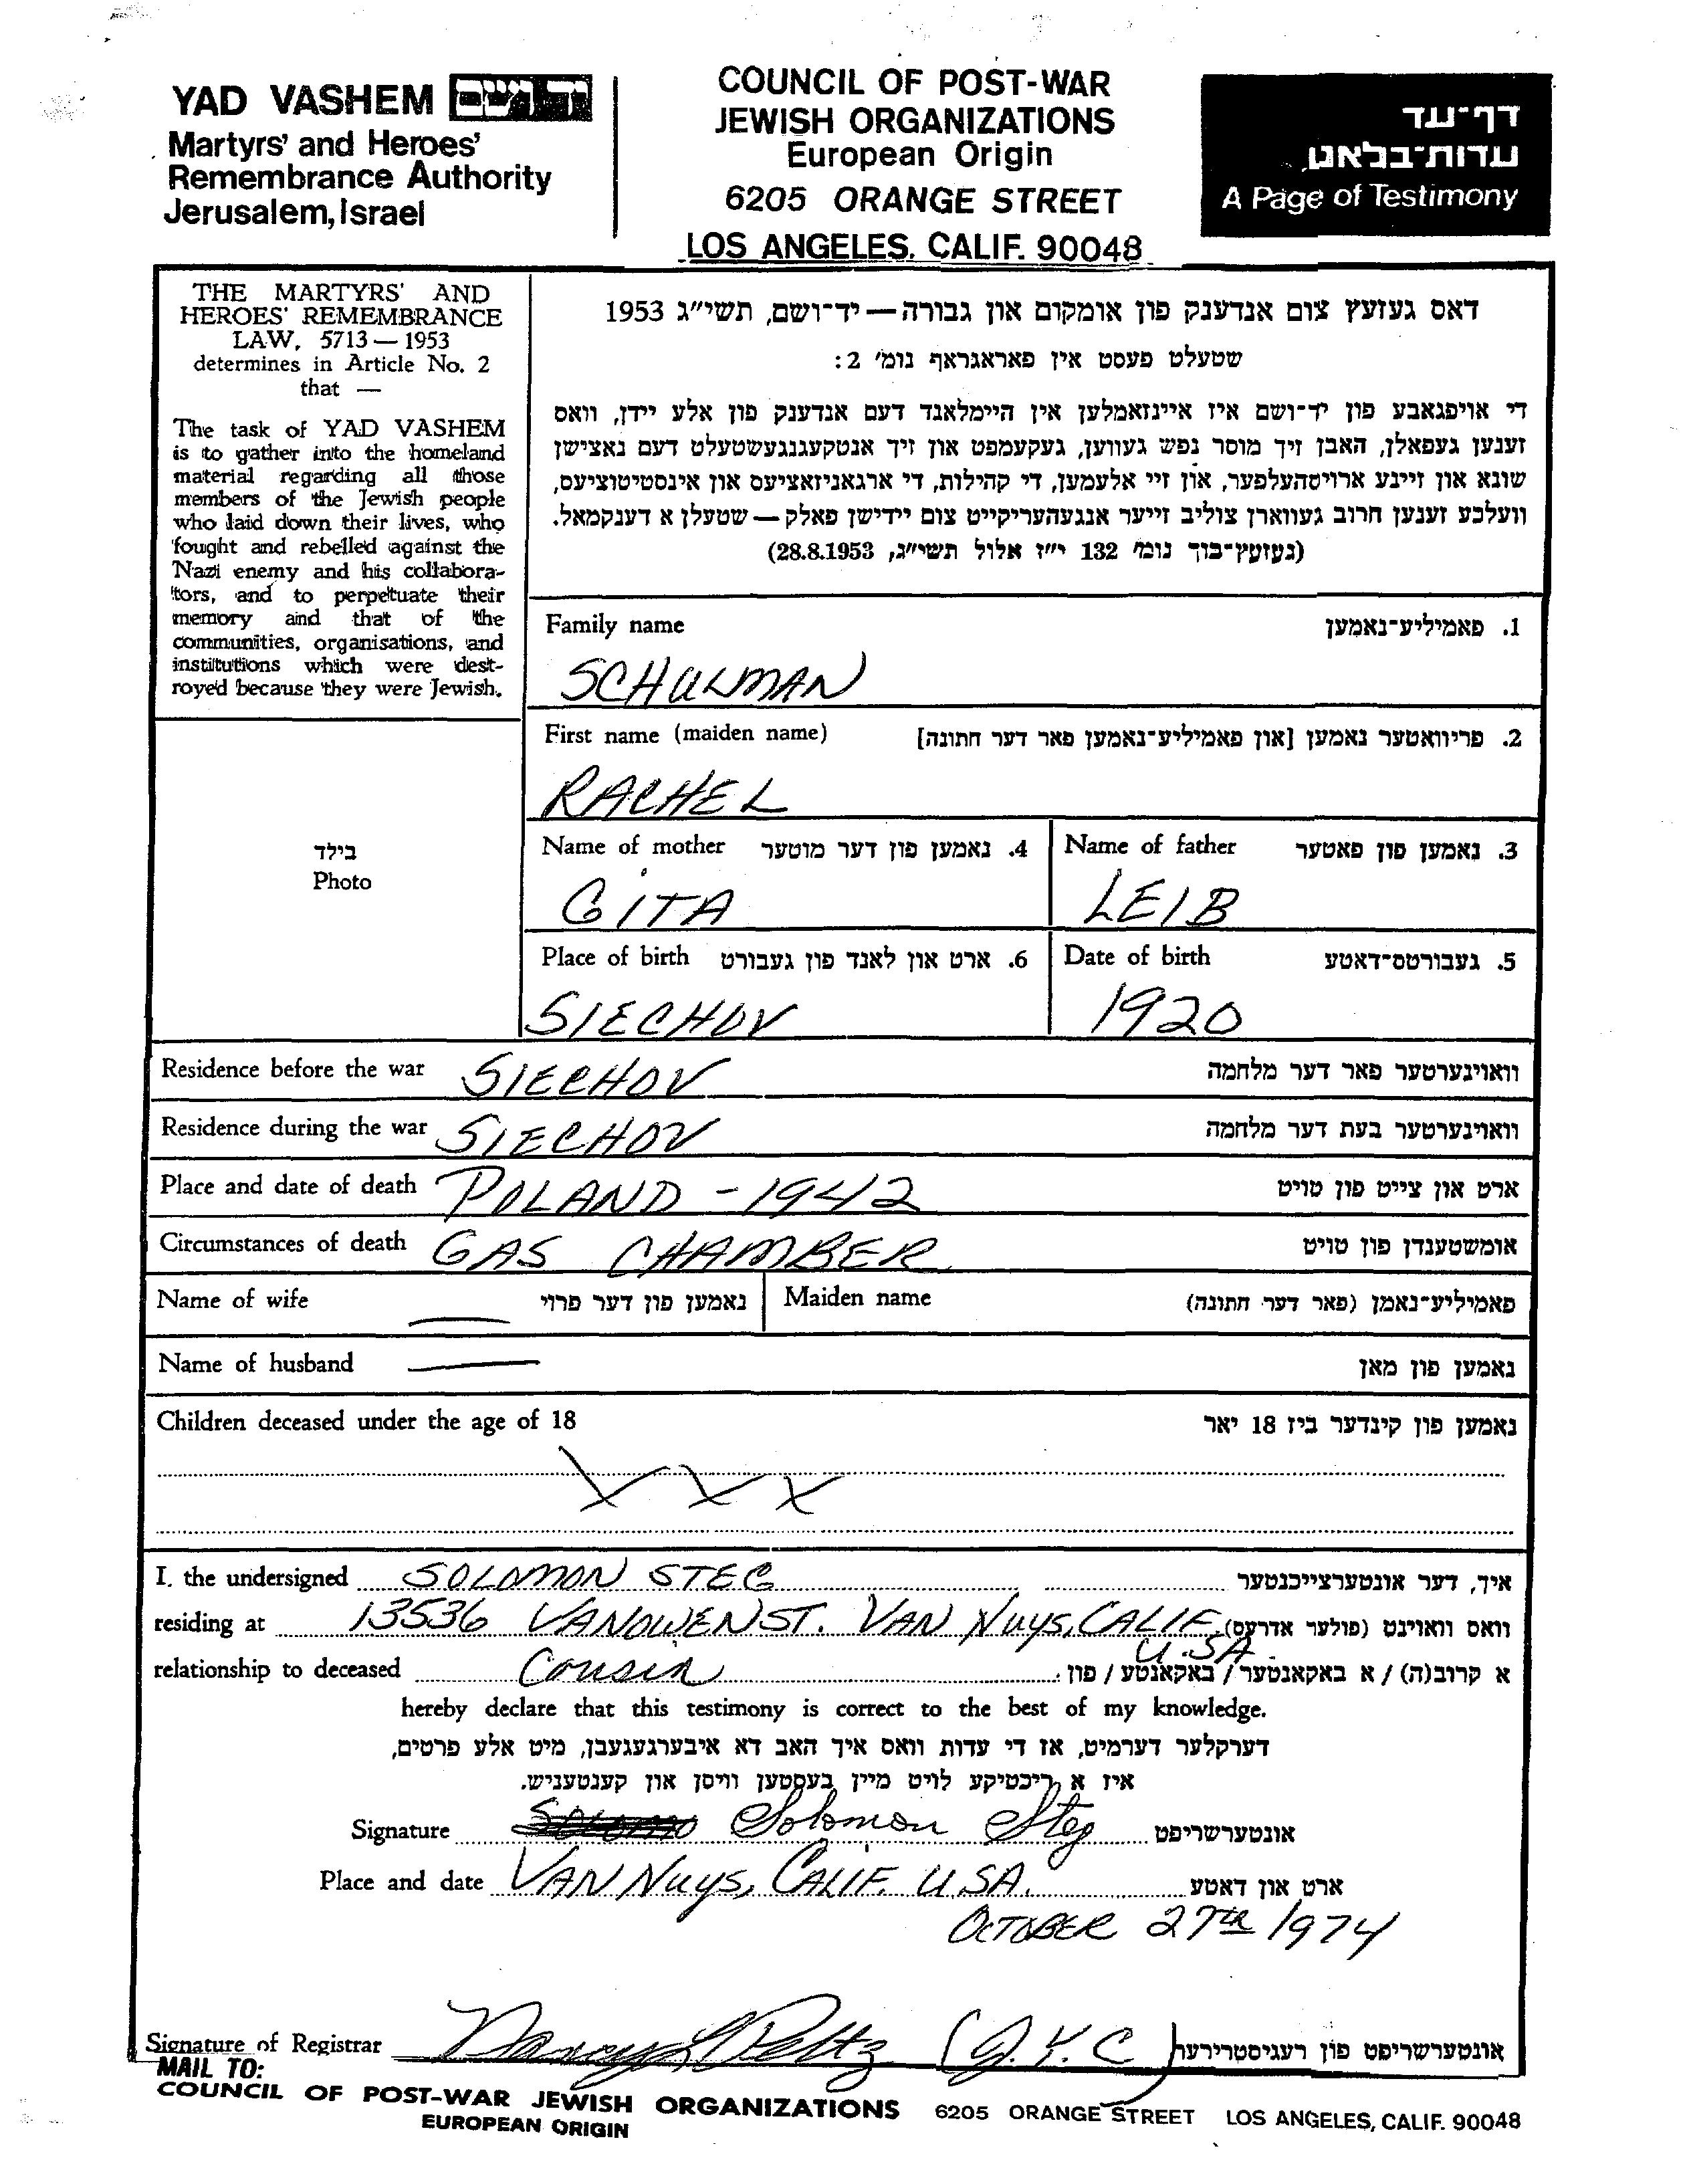 YAD VASHEM יד ושם
Martyrs' and Heroes'
Remembrance Authority
Jerusalem, Israel
COUNCIL OF POST-WAR
JEWISH ORGANIZATIONS
European Origin
6205 ORANGE STREET
LOS ANGELES, CALIF. 90048
דף־עד
עדות־בלאט
A Page of Testimony
THE MARTYRS' AND
HEROES' REMEMBRANCE
LAW, 5713 — 1953
determines in Article No. 2
that —
The task of YAD VASHEM
is to gather into the homeland
material regarding all those
members of the Jewish people
who laid down their lives, who
fought and rebelled against the
Nazi enemy and his collabora-
tors, and to perpetuate their
memory and that of the
communities, organisations, and
institutions which were dest-
royed because they were Jewish.
דאס געזעץ צום אנדענק פון אומקום און גבורה — יד־ושם, תשי"ג 1953
שטעלט פעסט אין פאראגראף נומ' 2:
די אויפגאבע פון יד־ושם איז איינזאמלען אין היימלאנד דעם אנדענק פון אלע יידן, וואס
זענען געפאלן, האבן זיך מוסר נפש געווען, געקעמפט און זיך אנטקעגנגעשטעלט דעם נאצישן
שונא און זיינע ארויסהעלפער, און זיי אלעמען, די קהילות, די ארגאניזאציעס און אינסטיטוציעס,
וועלכע זענען חרוב געווארן צוליב זייער אנגעהעריקייט צום יידישן פאלק — שטעלן א דענקמאל.
(געזעץ־בוך נומ' 132 י"ז אלול תשי"ג, 28.8.1953)
Family name 1. פאמיליע־נאמען
SCHULMAN
First name (maiden name) 2. פריוואטער נאמען [און פאמיליע־נאמען פאר דער חתונה]
RACHEL
בילד
Photo
Name of mother 4. נאמען פון דער מוטער Name of father 3. נאמען פון פאטער
GITA LEIB
Place of birth 6. ארט און לאנד פון געבורט Date of birth 5. געבורטס־דאטע
SIECHOV 1920
Residence before the war SIECHOV וואוינערטער פאר דער מלחמה
Residence during the war SIECHOV וואוינערטער בעת דער מלחמה
Place and date of death POLAND - 1942 ארט און צייט פון טויט
Circumstances of death GAS CHAMBER אומשטענדן פון טויט
Name of wife — נאמען פון דער פרוי Maiden name פאמיליע־נאמן (פאר דער חתונה)
Name of husband — נאמען פון מאן
Children deceased under the age of 18 נאמען פון קינדער ביז 18 יאר
X X X
I, the undersigned SOLOMON STEG איך, דער אונטערצייכנטער
residing at 13536 VANOWEN ST. VAN NUYS, CALIF. וואס וואוינט (פולער אדרעס)
U.SA.
relationship to deceased Cousin א קרוב(ה) / א באקאנטער / באקאנטע / פון:
hereby declare that this testimony is correct to the best of my knowledge.
דערקלער דערמיט, אז די עדות וואס איך האב דא איבערגעגעבן, מיט אלע פרטים,
איז א ריכטיקע לויט מיין בעסטען וויסן און קענטעניש.
Signature Solomon Steg אונטערשריפט
Place and date VAN NUYS, CALIF. U.SA. ארט און דאטע
OCTOBER 27th 1974
Signature of Registrar Nancy L Peltz (J.Y.C) אונטערשריפט פון רעגיסטרירער
MAIL TO:
COUNCIL OF POST-WAR JEWISH ORGANIZATIONS 6205 ORANGE STREET LOS ANGELES, CALIF. 90048
EUROPEAN ORIGIN